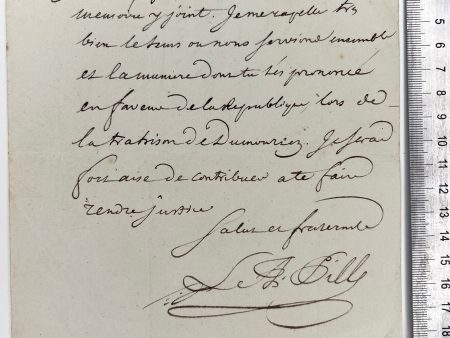 memoire y joint. Je me rapelle tres
bien le tems ou nous servions ensemble
et la maniere dont tu tés prononcé
en faveur de la Republique lors de
la trahison de Dumouriez. Je serai
fort aise de contribuer a te faire
rendre justice
Salut et fraternité
L. A. Pille
5
6
7
8
9
10
11
12
13
14
15
16
17
18